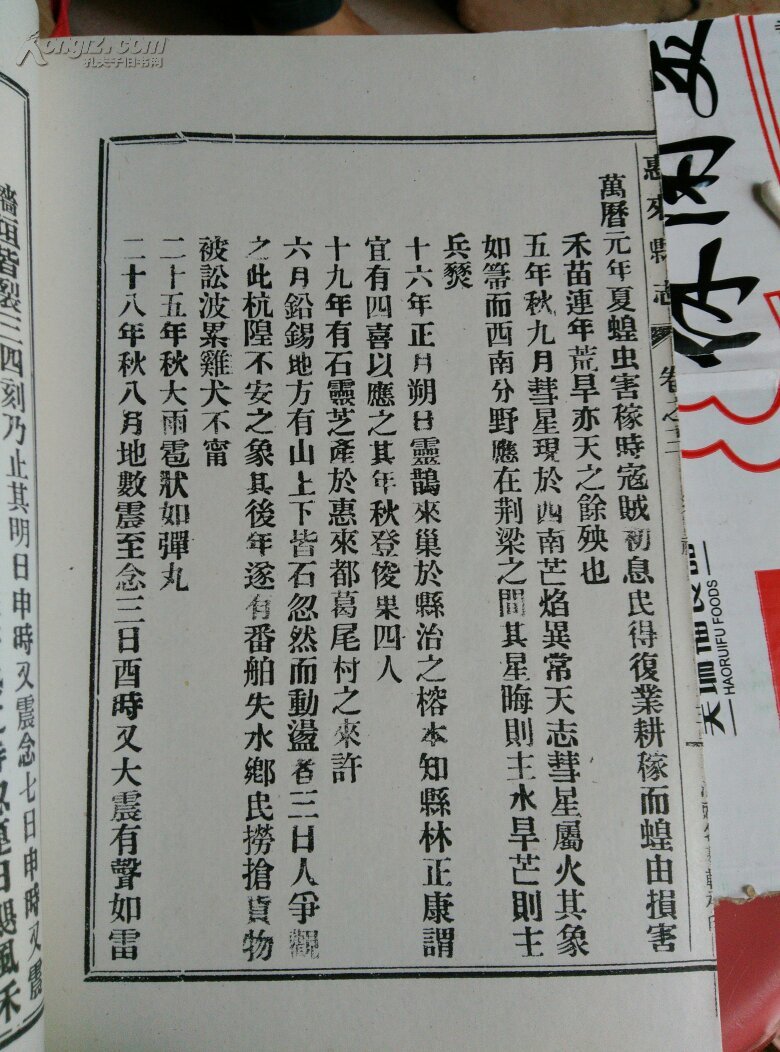 惠來縣志
卷之
萬曆元年夏蝗虫害稼時寇賊初息民得復業耕稼而蝗由損害
禾苗連年荒旱亦天之餘殃也
五年秋九月彗星現於西南芒焰異常天志彗星屬火其象
如箒而西南分野應在荆梁之間其星晦則主水旱芒則主
兵燹
十六年正月朔日靈鵲來巢於縣治之榕本知縣林正康謂
宜有四喜以應之其年秋登俊果四人
十九年有石靈芝產於惠來都葛尾村之來許
六月鉛錫地方有山上下皆石忽然而動盪者三日人爭觀
之此杌隉不安之象其後年遂有番舶失水鄉民撈搶貨物
被訟波累雞犬不甯
二十五年秋大雨雹狀如彈丸
二十八年秋八月地數震至念三日酉時又大震有聲如雷
牆垣皆裂三四刻乃止其明日申時又震念七日申時又震
日颶風禾
HAORUIFU FOODS
Kongfz.com
孔夫子旧书网